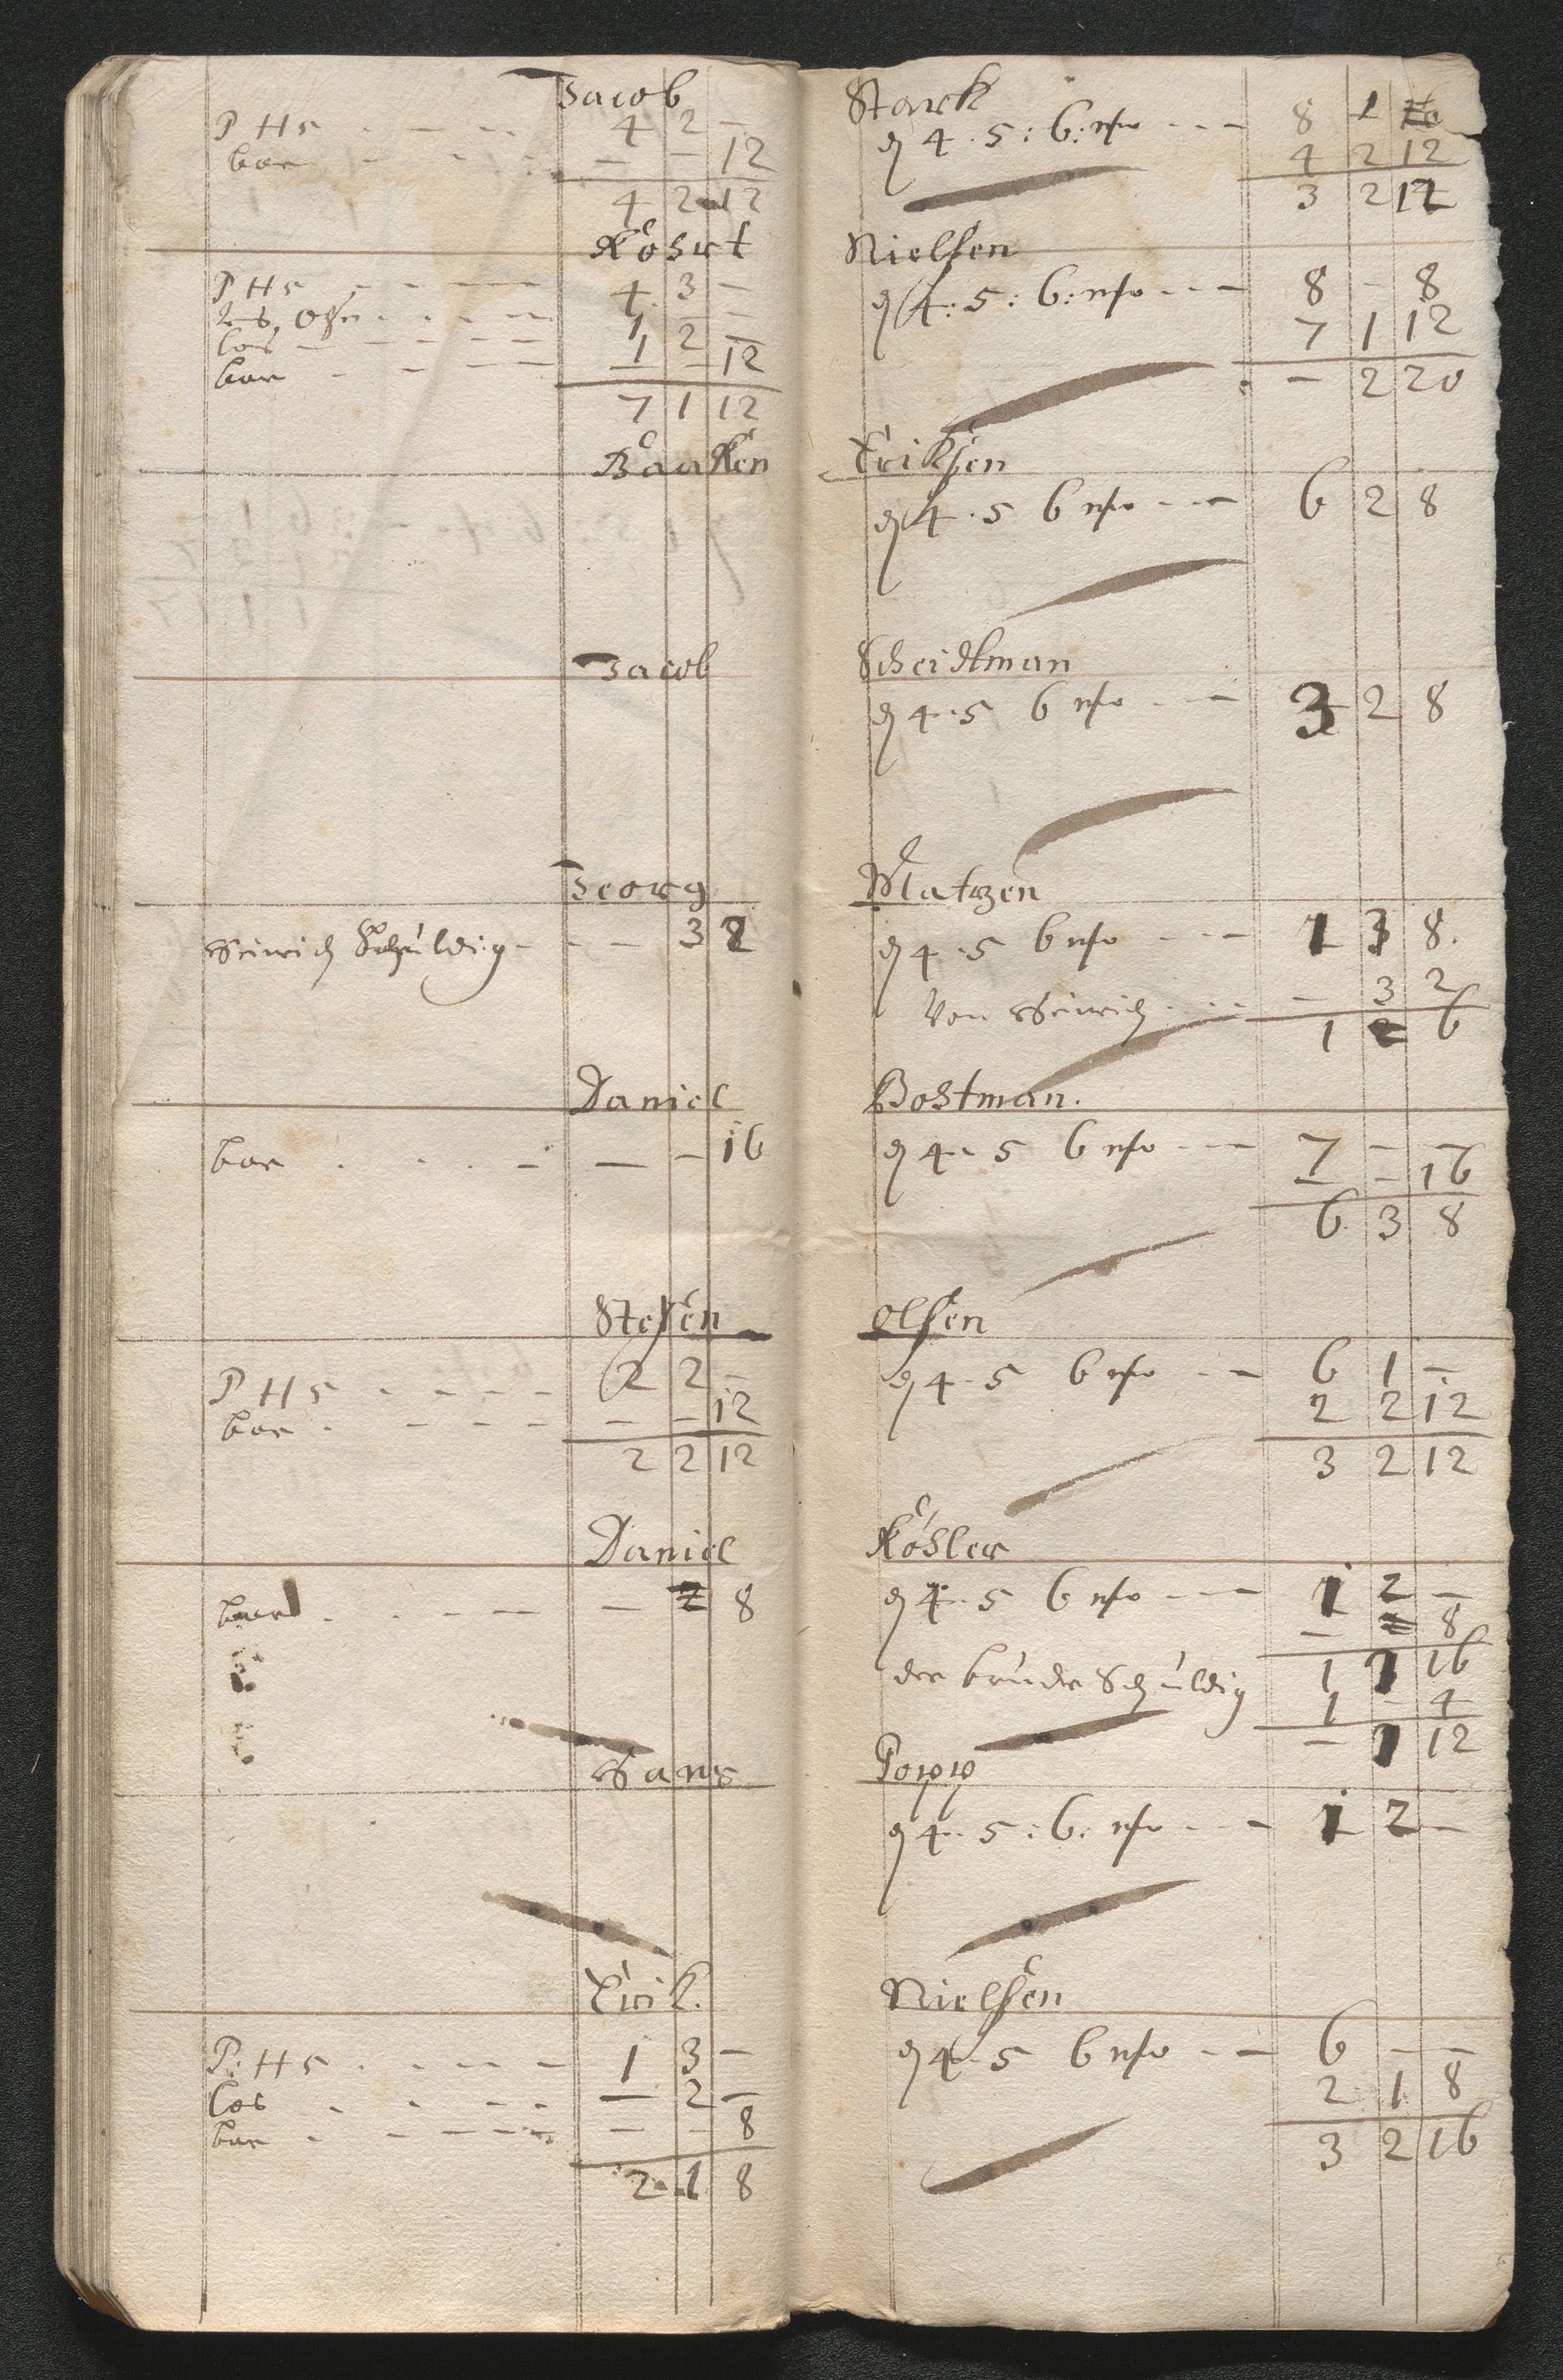 Jacob Starck
P H s 4 2 — 
bar — — 12
4 2 12
d 4 . 5 : 6 : mo 8 1
4 2 12
3 2 12
Kohrt Nielsen
P H s 4 3 —
1 — —
los 1 2 —
bar — — 12
7 1 12
d 4 : 5 : 6 : mo 8 — 8
7 1 12
— 2 20
Baarsen Eriksen
d 4 . 5 6 mo 6 2 8
Jacob Scheidtman
d 4 . 5 6 mo 3 2 8
Georg Matzen
Heinrich Schuldig — 3 2
d 4 . 5 6 mo 1 3 8
Von Heinrich — 3 2
1 — 6
Daniel Bostman.
bar — — 16
d 4 . 5 6 mo 7 — —
— — 16
6 3 8
Stefen Olsen
P H s 2 2 —
bar — — 12
2 2 12
d 4 . 5 6 mo 6 1 —
2 2 12
3 2 12
Daniel Köhler
bar — 8
d 4 . 5 6 mo 1 2 —
— 8
1 1 16
der bruder Schuldig 1 — 4
— 1 12
Hans Popp
d 4 . 5 : 6 : mo 1 2 —
Erik. Nielsen
P : H s 1 3 —
los — 2 —
bar — — 8
2 1 8
d 4 . 5 6 mo 6 — —
2 1 8
3 2 16